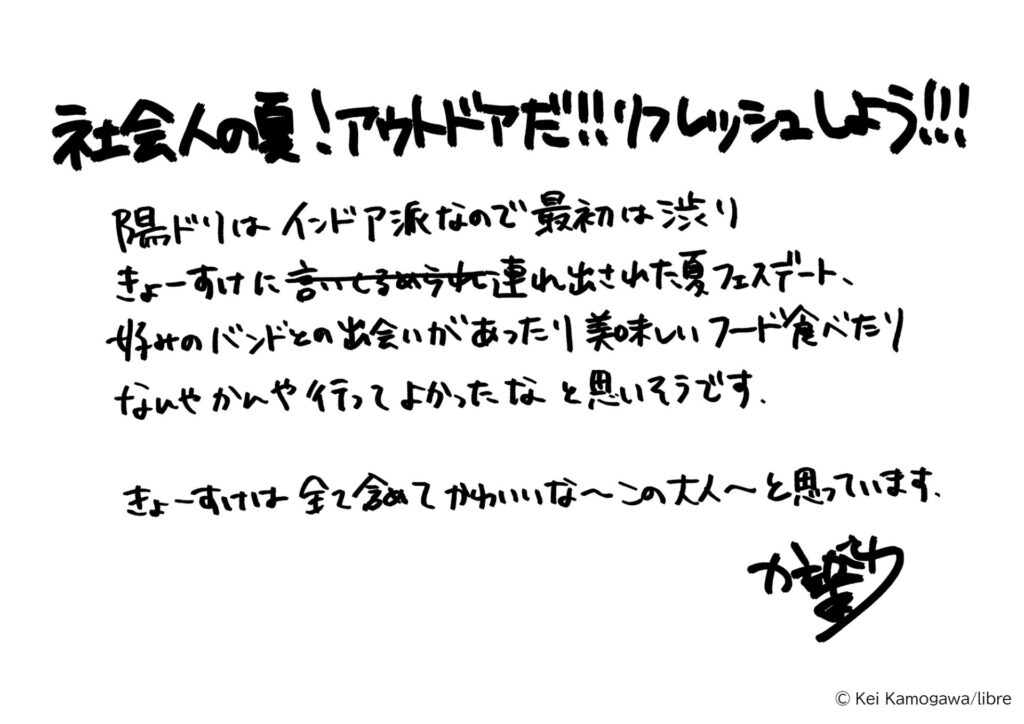 社会人の夏!アウトドアだ!!リフレッシュしよう!!!
陽ドリはインドア派なので最初は渋り
きょーすけに言いくるめられて連れ出された夏フェスデート、
好みのバンドとの出会いがあったり美味しいフード食べたり
なんやかんや行ってよかったなと思いそうです.
きょーすけは全て含めてかわいいな〜この大人〜と思っています.
© Kei Kamogawa/libre